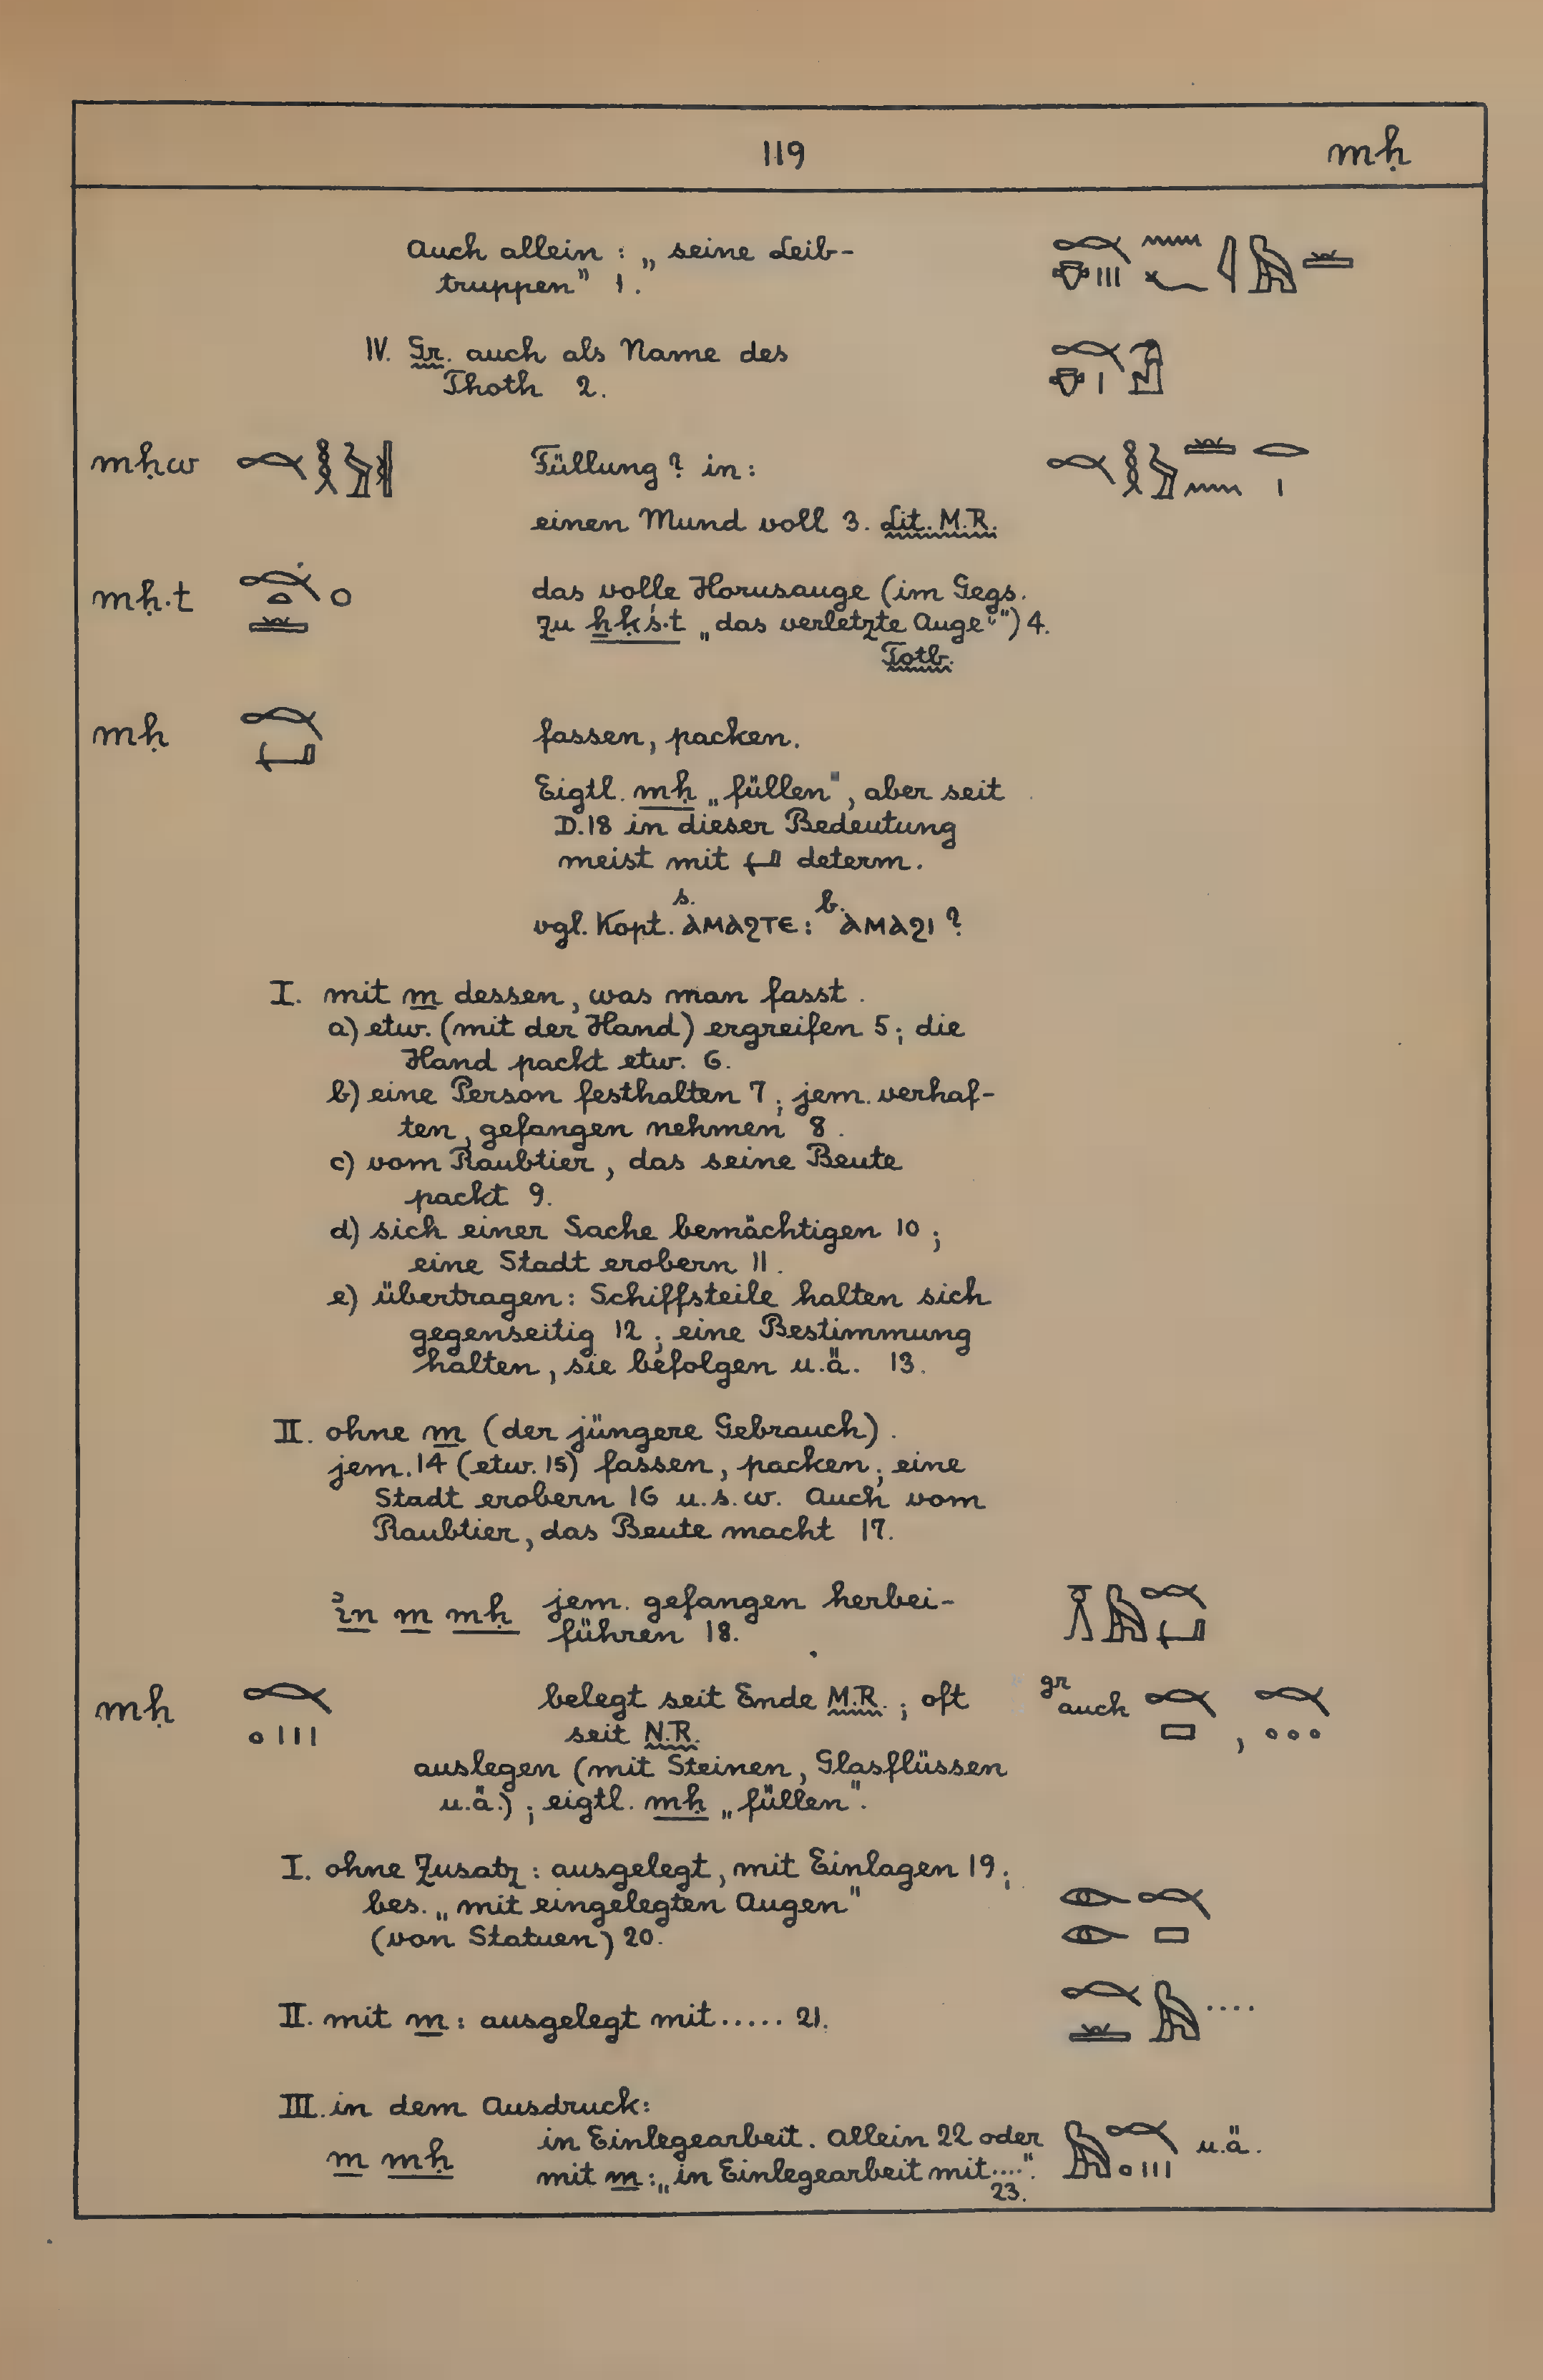 119 mḥ
Auch allein: „seine Leib-
truppen" 1.
IV. Gr. auch als Name des
Thoth 2.
mḥw Füllung? in:
einen Mund voll 3. Lit. M.R.
mḥ.t das volle Horusauge (im Gegs.
zu ẖḳś.t „das verletzte Auge") 4.
Totb.
mḥ fassen, packen.
Eigtl. mḥ „füllen", aber seit
D.18 in dieser Bedeutung
meist mit 𓂡 determ.
vgl. Kopt. s. ⲁⲙⲁϩⲧⲉ: b. ⲁⲙⲁϩⲓ?
I. mit m dessen, was man fasst.
a) etw. (mit der Hand) ergreifen 5; die
Hand packt etw. 6.
b) eine Person festhalten 7; jem. verhaf-
ten, gefangen nehmen 8.
c) vom Raubtier, das seine Beute
packt 9.
d) sich einer Sache bemächtigen 10;
eine Stadt erobern 11.
e) übertragen: Schiffsteile halten sich
gegenseitig 12; eine Bestimmung
halten, sie befolgen u.ä. 13.
II. ohne m (der jüngere Gebrauch).
jem. 14 (etw. 15) fassen, packen; eine
Stadt erobern 16 u.s.w. Auch vom
Raubtier, das Beute macht 17.
ỉn m mḥ jem. gefangen herbei-
führen 18.
mḥ belegt seit Ende M.R.; oft gr auch
seit N.R.
auslegen (mit Steinen, Glasflüssen
u.ä.); eigtl. mḥ „füllen".
I. ohne Zusatz: ausgelegt, mit Einlagen 19;
bes. „mit eingelegten Augen"
(von Statuen) 20.
II. mit m: ausgelegt mit ..... 21.
III. in dem Ausdruck:
m mḥ in Einlegearbeit. Allein 22 oder u.ä.
mit m: „in Einlegearbeit mit....".
23.